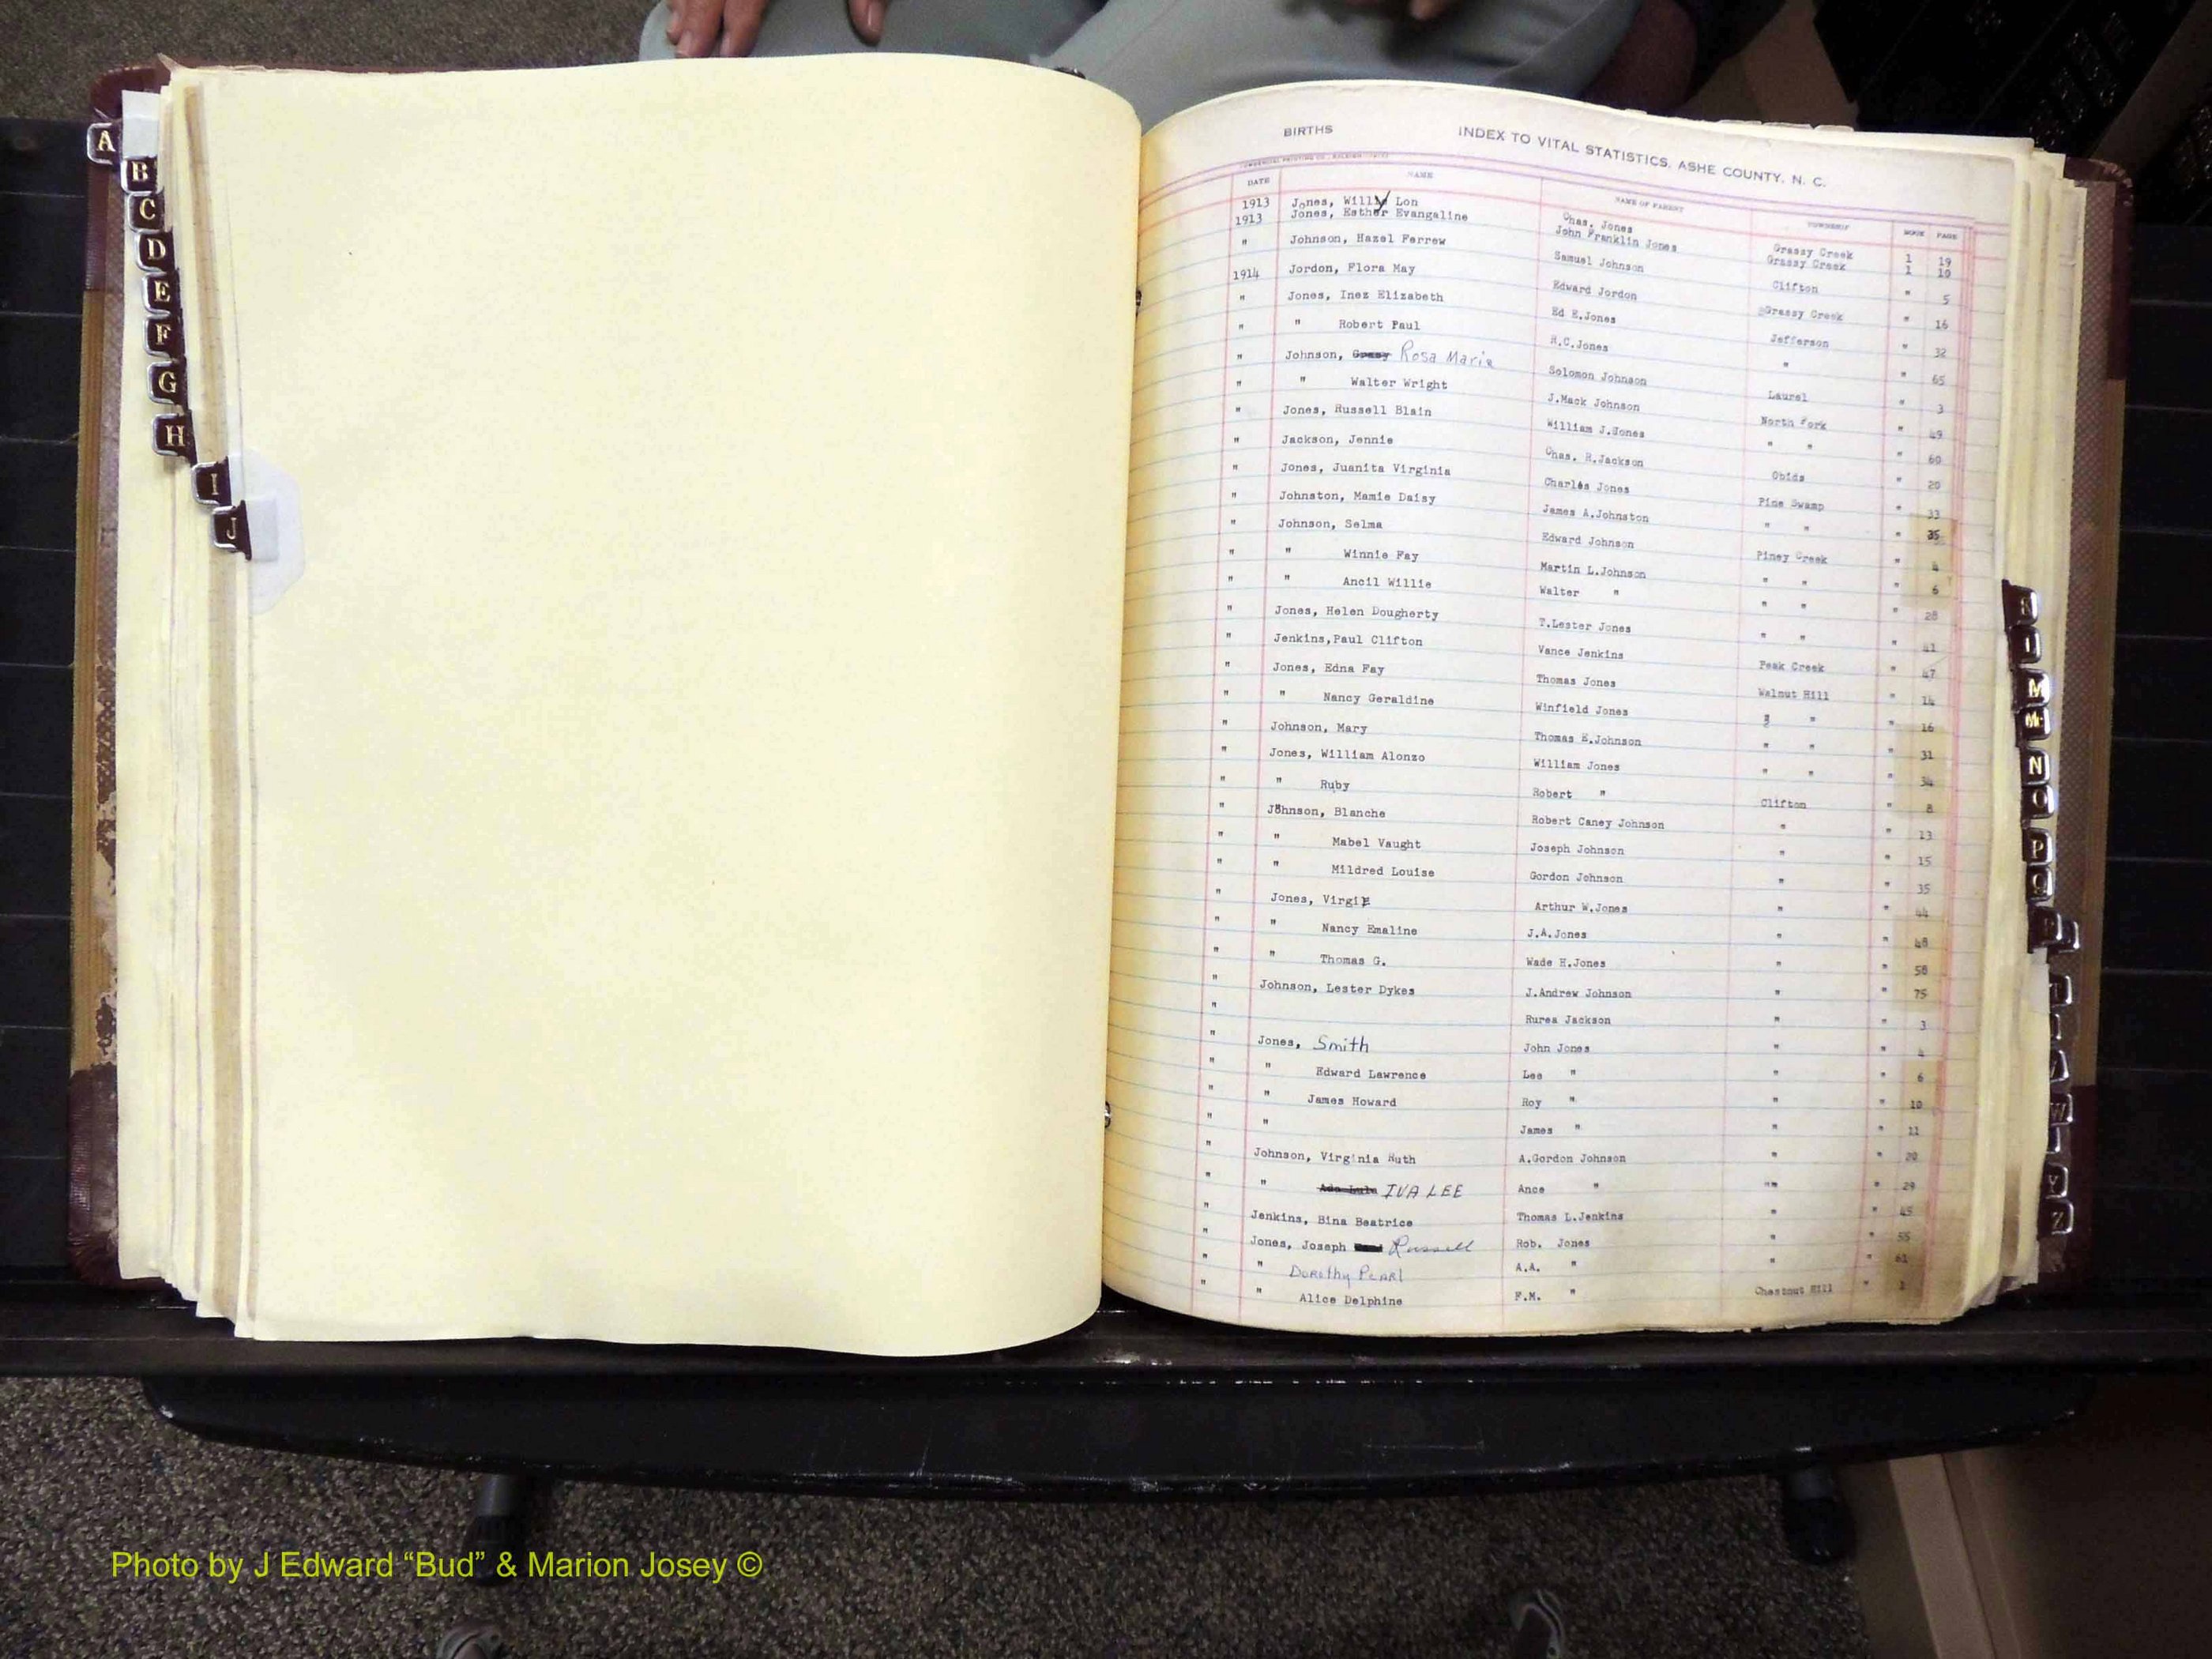 BIRTHS INDEX TO VITAL STATISTICS, ASHE COUNTY, N. C.
DATE NAME NAME OF PARENT TOWNSHIP BOOK PAGE
1913 Jones, Willy Lon Chas. Jones Grassy Creek 1 19
1913 Jones, Esther Evangaline John Franklin Jones Grassy Creek 1 10
" Johnson, Hazel Ferrew Samuel Johnson Clifton " 5
1914 Jordon, Flora May Edward Jordon Grassy Creek " 16
" Jones, Inez Elizabeth Ed E.Jones Jefferson " 32
" " Robert Paul R.C.Jones " " 65
" Johnson, Rosa Marie Solomon Johnson Laurel " 3
" " Walter Wright J.Mack Johnson North Fork " 49
" Jones, Russell Blain William J.Jones " " " 60
" Jackson, Jennie Chas. R.Jackson Obids " 20
" Jones, Juanita Virginia Charles Jones Pine Swamp " 33
" Johnston, Mamie Daisy James A.Johnston " " " 35
" Johnson, Selma Edward Johnson Piney Creek " 4
" " Winnie Fay Martin L.Johnson " " " 6
" " Ancil Willie Walter " " " " 28
" Jones, Helen Dougherty T.Lester Jones " " " 41
" Jenkins,Paul Clifton Vance Jenkins Peak Creek " 47
" Jones, Edna Fay Thomas Jones Walnut Hill " 14
" " Nancy Geraldine Winfield Jones " " " 16
" Johnson, Mary Thomas E.Johnson " " " 31
" Jones, William Alonzo William Jones " " " 34
" " Ruby Robert " Clifton " 8
" Johnson, Blanche Robert Caney Johnson " " 13
" " Mabel Vaught Joseph Johnson " " 15
" " Mildred Louise Gordon Johnson " " 35
" Jones, Virgil Arthur W.Jones " " 44
" " Nancy Emaline J.A.Jones " " 48
" " Thomas G. Wade H.Jones " " 58
" Johnson, Lester Dykes J.Andrew Johnson " " 75
" Rurea Jackson " " 3
" Jones, Smith John Jones " " 4
" " Edward Lawrence Lee " " " 6
" " James Howard Roy " " " 10
" " James " " " 11
" Johnson, Virginia Ruth A.Gordon Johnson " " 20
" " IVA LEE Ance " "" " 29
" Jenkins, Bina Beatrice Thomas L.Jenkins " " 45
" Jones, Joseph Russell Rob. Jones " " 55
" " Dorothy Pearl A.A. " " " 61
" " Alice Delphine F.M. " Chestnut Hill " 1
A
B
C
D
E
F
G
H
I
J
M
Mc
N
O
P
Q
W
Y
Z
Photo by J Edward “Bud” & Marion Josey ©